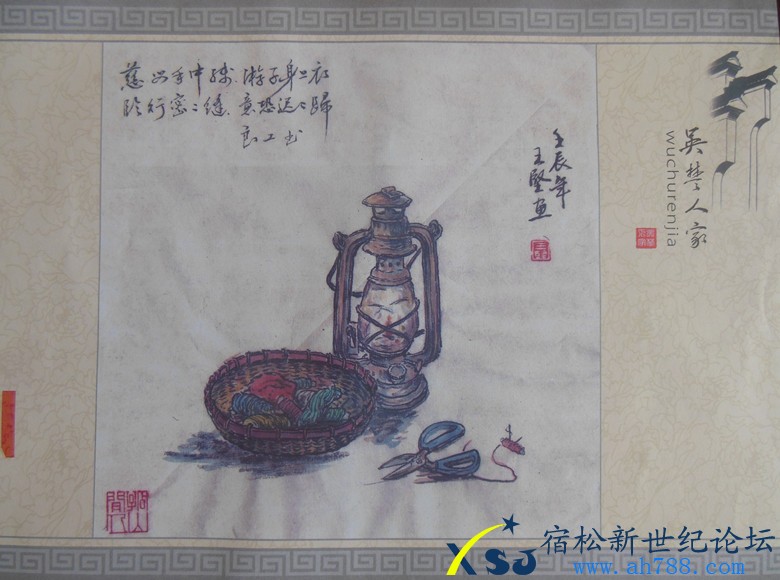 慈母手中线.游子身上衣
临行密〻缝.意恐迟〻歸
良工书
壬辰年
王堅画
吴楚人家
wuchurenjia
XSJ
宿松新世纪论坛
www.ah788.com